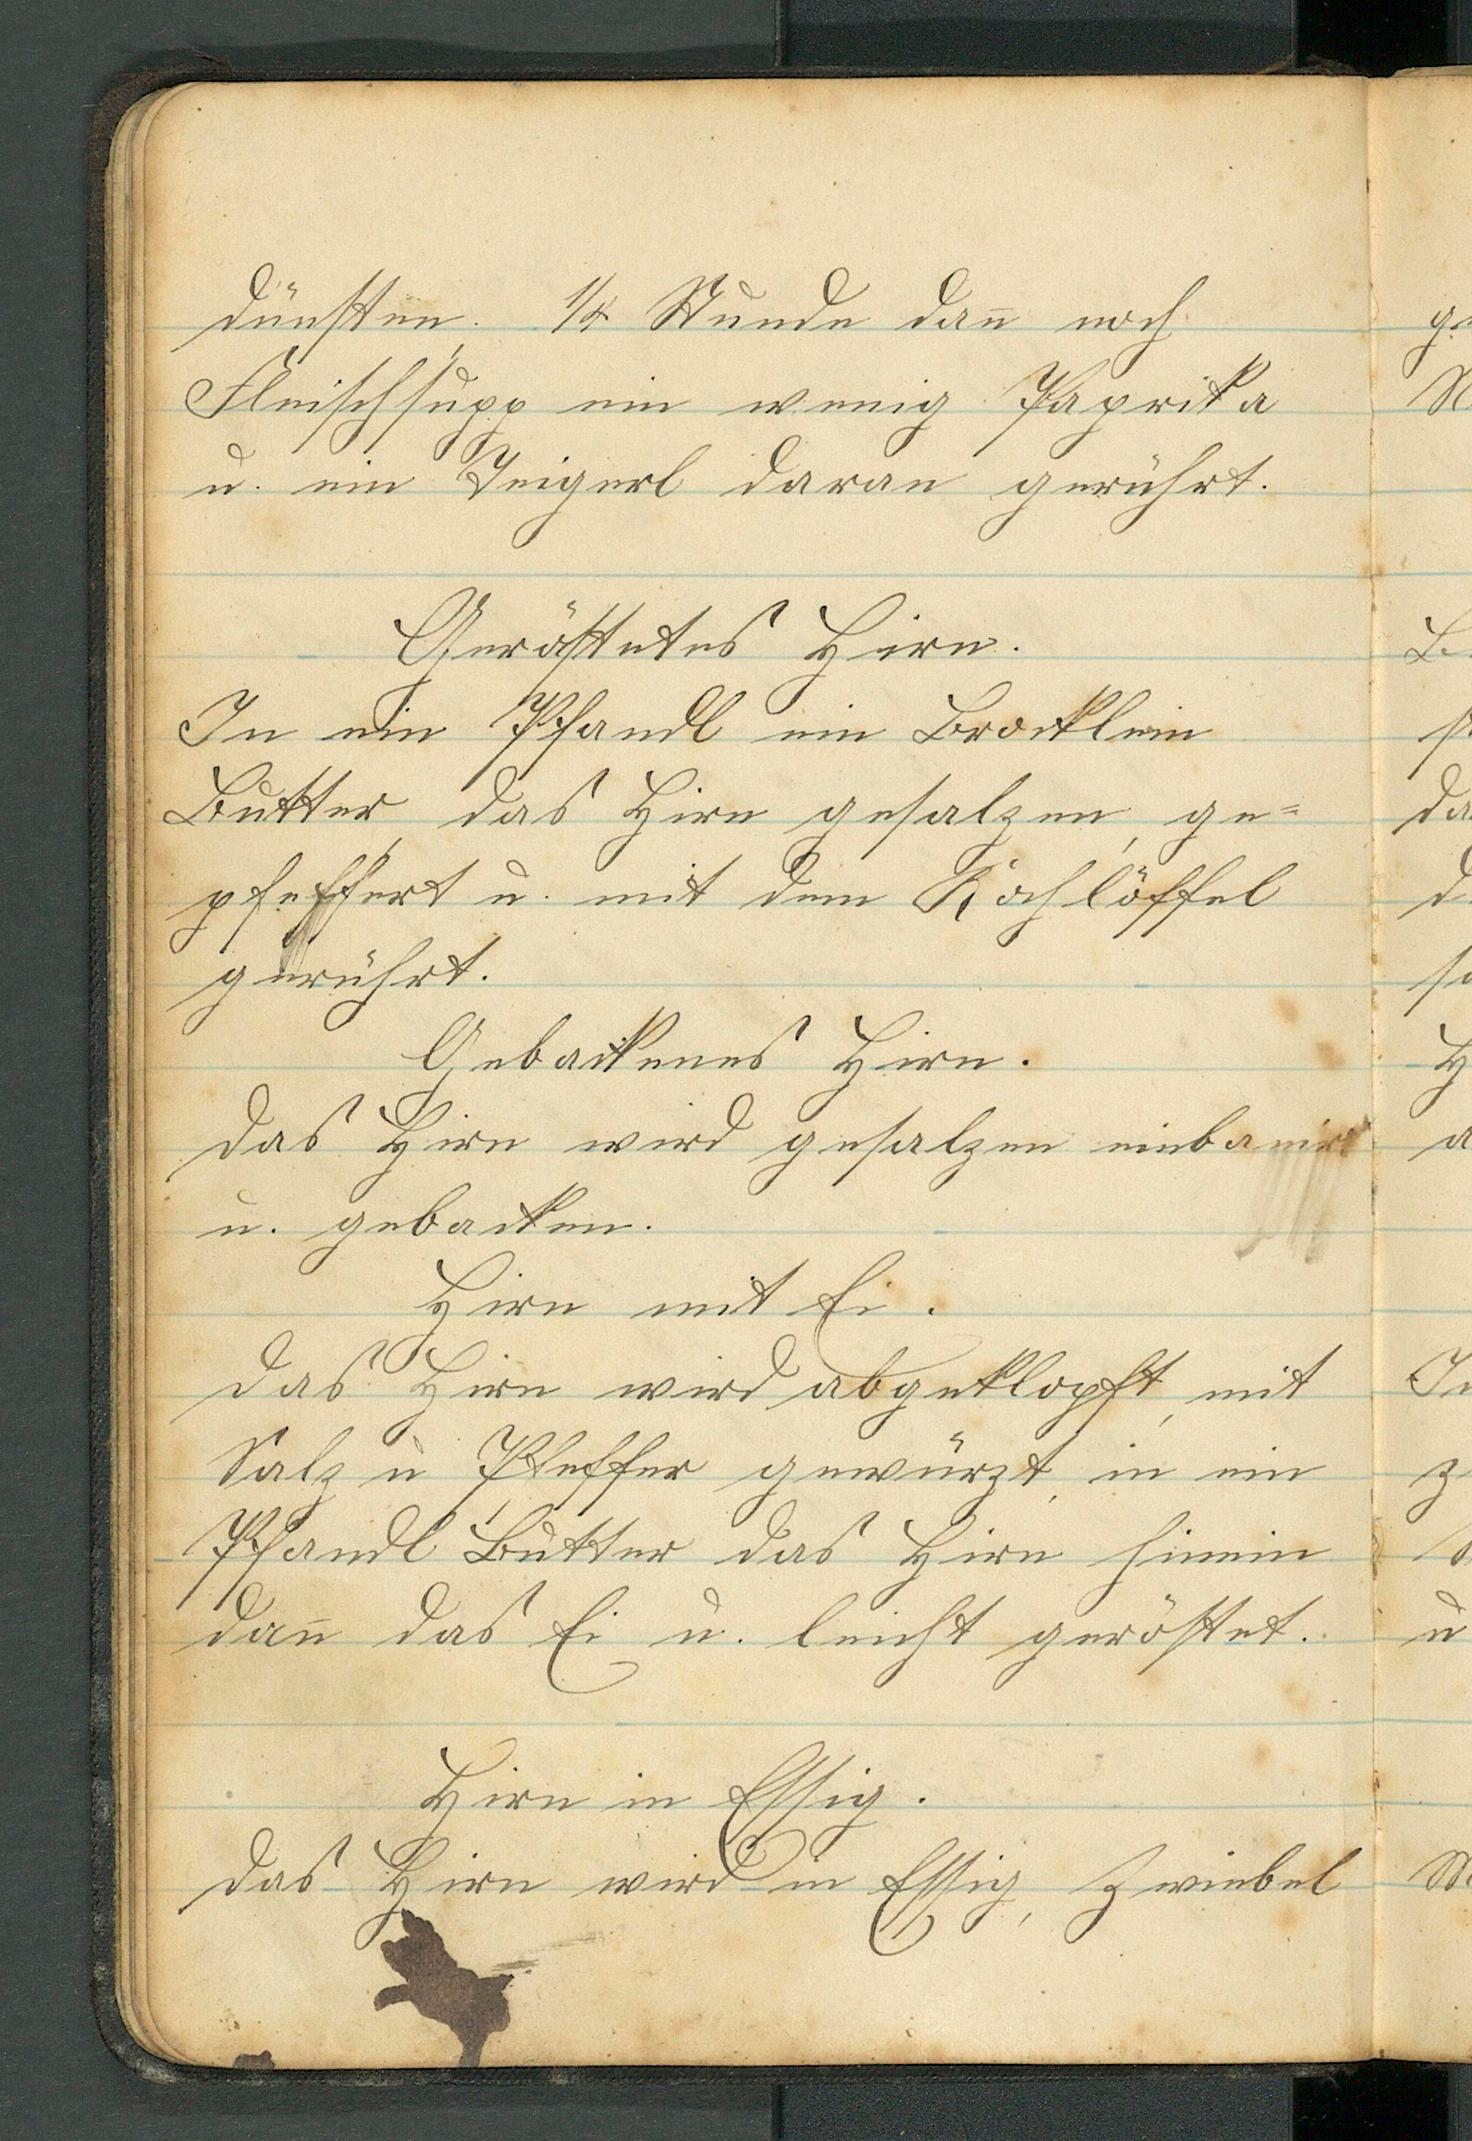 dünsten. 1/4 Stunde dan̄ noch
Fleischsupp ein wenig Paprika
u. ein Teigerl daran gerührt.
Geröstetes Hirn.
In ein Pfandl ein Brocklein
Butter, das Hirn gesalzen, ge=
pfeffert u. mit dem Kochlöffel
gerührt.
Gebackenes Hirn.
Das Hirn wird gesalzen einbanirt
u. gebacken.
Hirn mit Ei.
Das Hirn wird abgeklopft, mit
Salz u Pfeffer gewürzt, in ein
Pfandl Butter das Hirn hinein
dan̄ das Ei u. leicht geröstet.
Hirn in Essig.
Das Hirn wird in Essig, Zwiebel